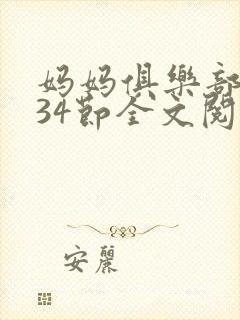 妈妈俱樂部
34節全文閱
安麗